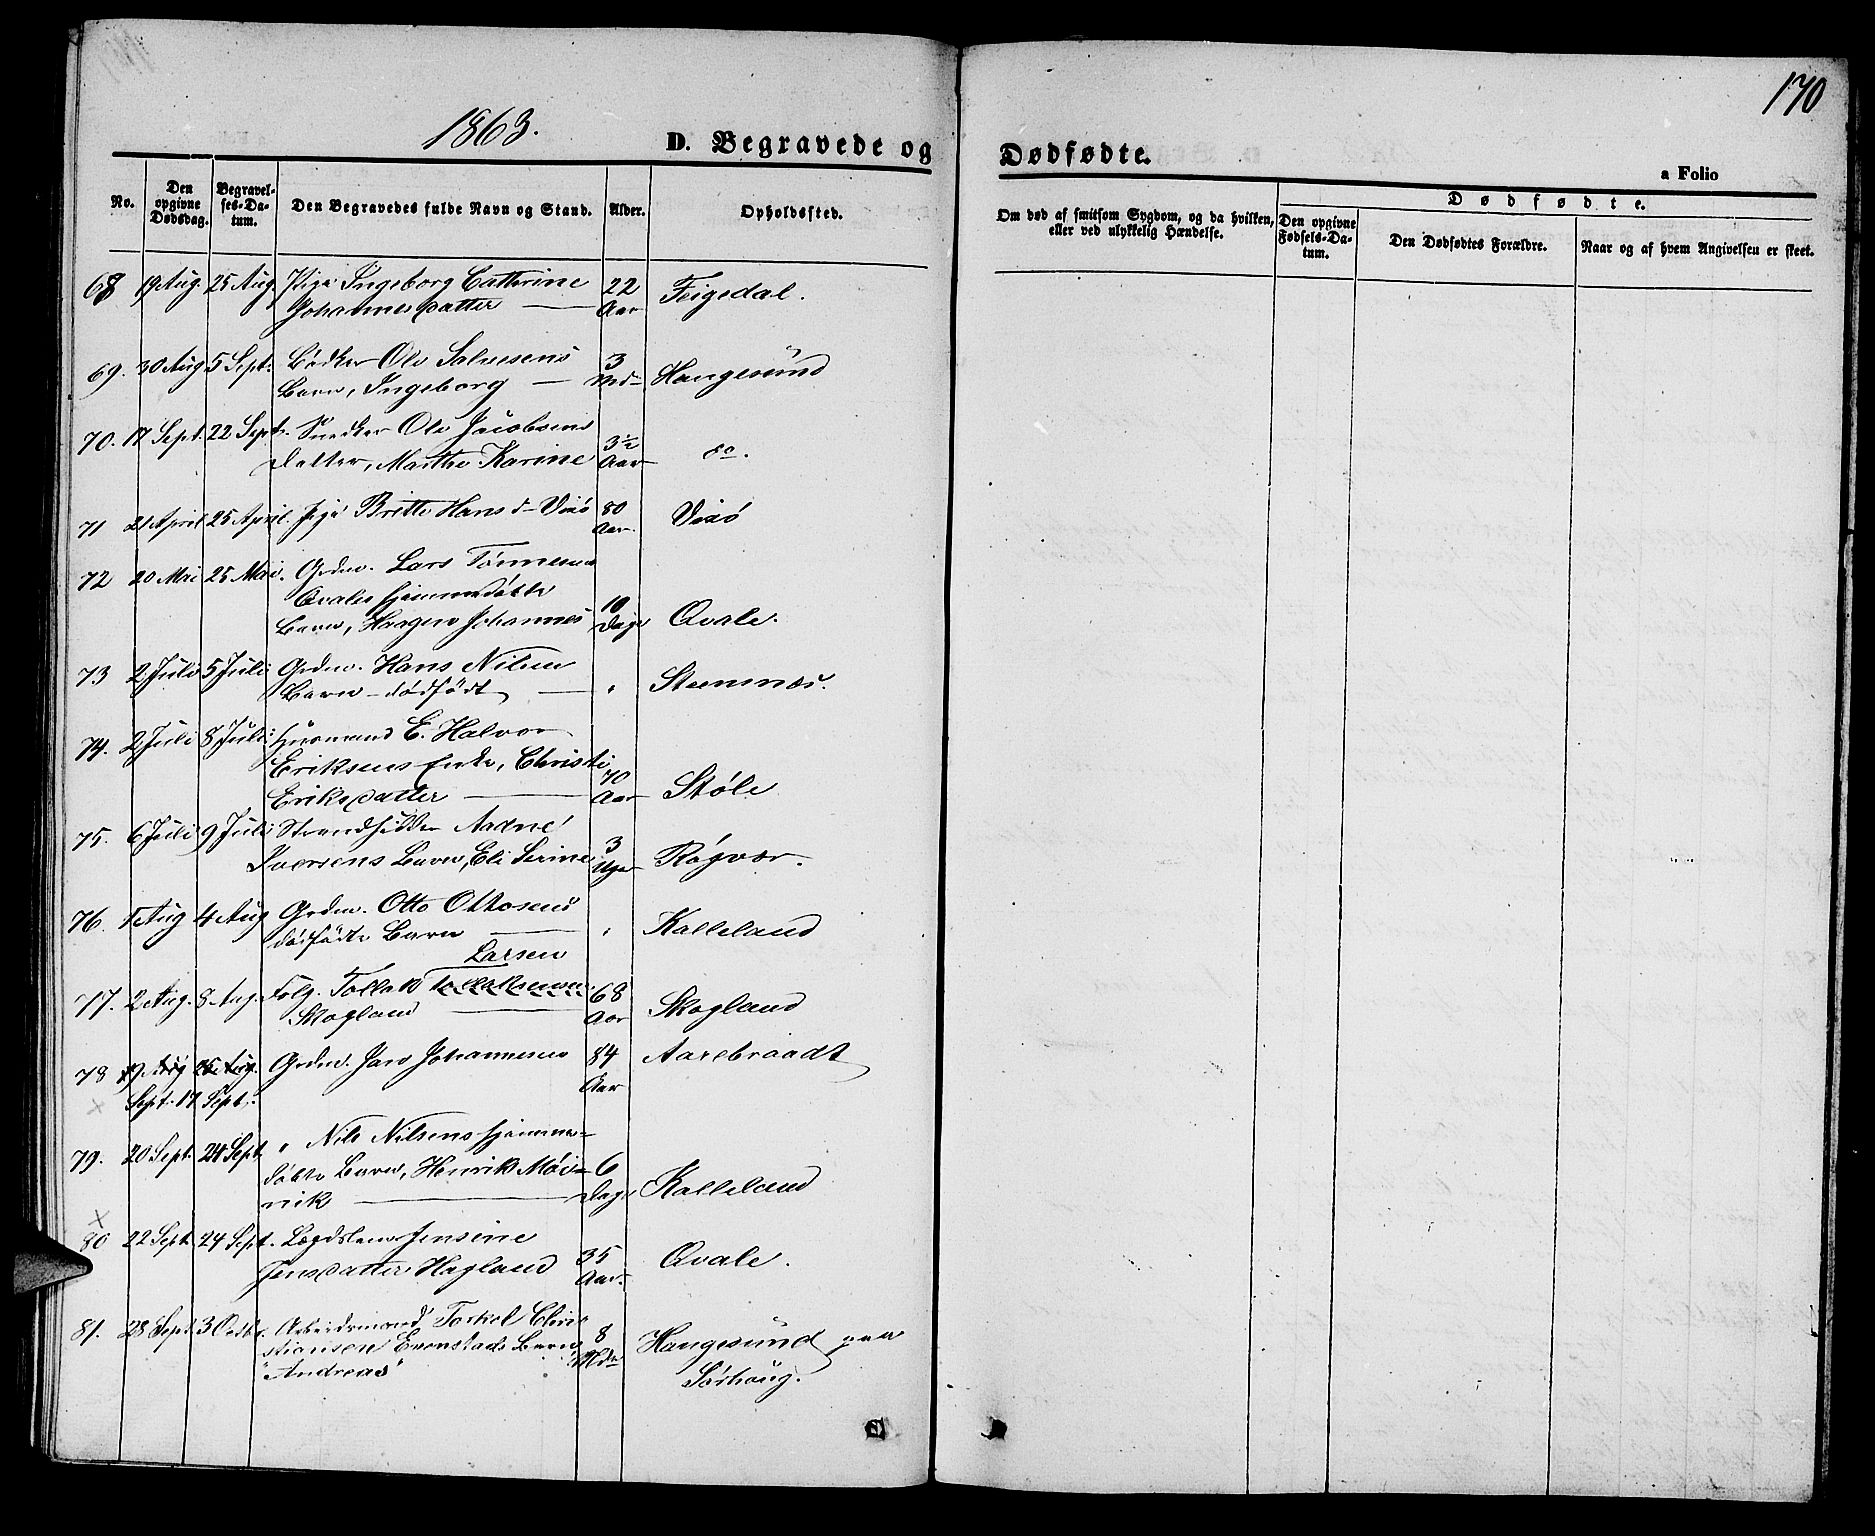 170
1863.
D. Begravede og Dødfødte.
a Folio
No.
Den opgivne Dødsdag.
Begravelses-Datum.
Den Begravedes fulde Navn og Stand.
Alder.
Opholdssted.
Om død af smitsom Sygdom, og da hvilken, eller ved ulykkelig Hændelse.
Dødfødte.
Den opgivne Fødsels-Datum.
Den Dødfødtes Forældre.
Naar og af hvem Angivelsen er skeet.
68 19 Aug. 25 Aug. Pige Ingeborg Cathrine 22
Johannesdatter — Aar Feigedal.
69. 30 Aug 5 Sept. Bødker Ole Salvesens 3
Barn, Ingeborg — Md. Haugesund
70. 17 Sept. 22 Sept. Snedker Ole Jacobsens
Datter, Marthe Karine 3½ Aar do.
71 21 April 25 April. Pige Britte Hans d. Vixø 80 Aar. Vixø
72 20 Mai 25 Mai. Grdm. Lars Tønnesen
Qvales hjemmedøbte 10
Barn, Haagen Johannes Dage Qvale.
73 2 Juli 5 Juli Grdm. Hans Nilsen
Barn – dødfødt — " Steensnæs.
74. 2 Juli 8 Juli Husmand E. Halvor
Eriksens Enke, Christi 70
Eriksdatter — Aar Støle
75. 6 Juli 9 Juli Strandsidder Aadne
Iversens Barn, Eli Serine 3 Uger Røgvær.
76. 1 Aug 4 Aug Grdm. Otto Ottosens
dødfødte Barn — " Kalleland
Larsen
77. 2 Aug. 8 Aug. Folg. Tollak Tollaksen 68
Skogland — Aar Skogland
78 19. Aug 26 Aug. Grdm. Jan Johannesen 84 Aarebraadt
Sept. 17 Sept. Aar
79. 20 Sept. 24 Sept. " Nils Nilsens hjemme-
døbte Barn, Henrik Mei- 6
nik — Dage Kalleland
80 22 Sept. 24 Sept. Lægdslem Jensine 35
Jensdatter Hagland Aar. Qvale.
81. 28 Sept. 3 Octbr. Arbeidsmand Torkel Chri- 8 Haugesund paa
stiansen Evenstads Barn Mdr Sørhaug.
"Andreas"